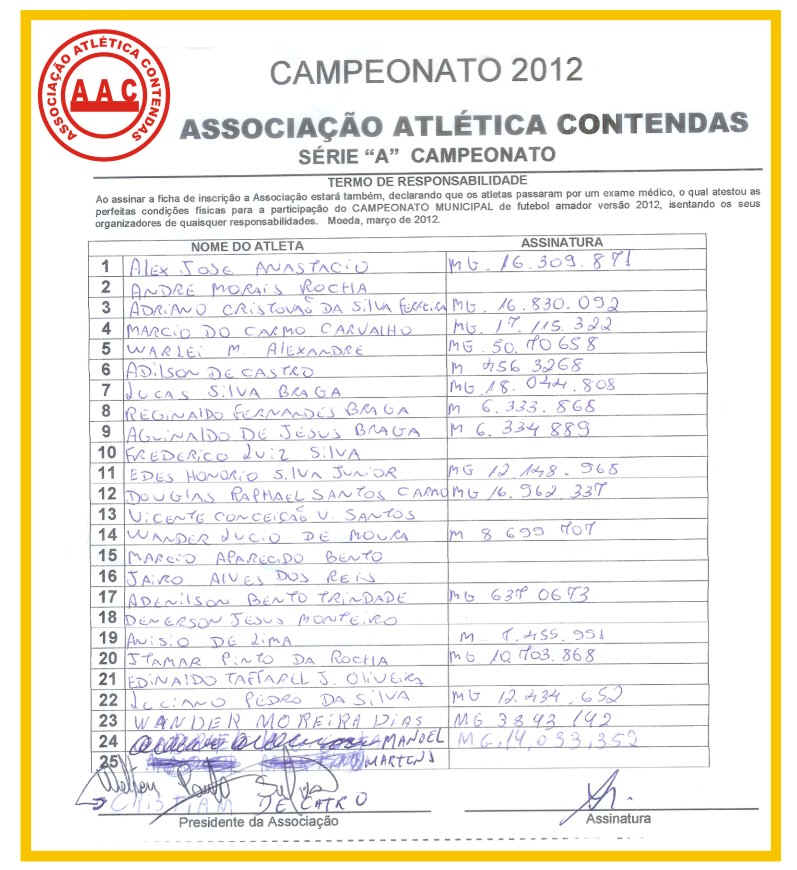 ASSOCIAÇÃO ATLÉTICA CONTENDAS
AAC
CAMPEONATO 2012
ASSOCIAÇÃO ATLÉTICA CONTENDAS
SÉRIE “A” CAMPEONATO
TERMO DE RESPONSABILIDADE
Ao assinar a ficha de inscrição a Associação estará também, declarando que os atletas passaram por um exame médico, o qual atestou as
perfeitas condições físicas para a participação do CAMPEONATO MUNICIPAL de futebol amador versão 2012, isentando os seus
organizadores de quaisquer responsabilidades. Moeda, março de 2012.
NOME DO ATLETA ASSINATURA
1 ALEX JOSE ANASTACIO MG. 16.309.871
2 ANDRE MORAIS ROCHA
3 ADRIANO CRISTOVAÕ DA SILVA FERREIRA MG. 16.830.092
4 MARCIO DO CARMO CARVALHO MG. 17.115.322
5 WARLEI M ALEXANDRE MG. 50.70658
6 ADILSON DE CASTRO M 456 3268
7 LUCAS SILVA BRAGA MG 18.044.808
8 REGINALDO FERNANDES BRAGA M 6.333.868
9 AGUINALDO DE JESUS BRAGA M 6.334 889
10 FREDERICO LUIZ SILVA
11 EDES HONORIO SILVA JUNIOR MG 12 148.968
12 DOUGLAS RAPHAEL SANTOS MG 16.962.337
13 VICENTE CONCEIÇÃO V. SANTOS
14 WANDER LUCIO DE MOURA M 8 699 707
15 MARCIO APARECIDO BENTO
16 JAIRO ALVES DOS REIS
17 ADENILSON BENTO TRINDADE MG 637 0673
18 DENERSON JESUS MONTEIRO
19 ANISIO DE LIMA M 7.455.991
20 ITAMAR PINTO DA ROCHA MG 10 703.868
21 EDINALDO J. OLIVEIRA
22 LUCIANO PEDRO DA SILVA MG 12.434.652
23 WANDER MOREIRA DIAS MG 3842 142
24 MANOEL MG.14,033,352
25 MARTENS
CRISTIAM DE
Presidente da Associação Assinatura